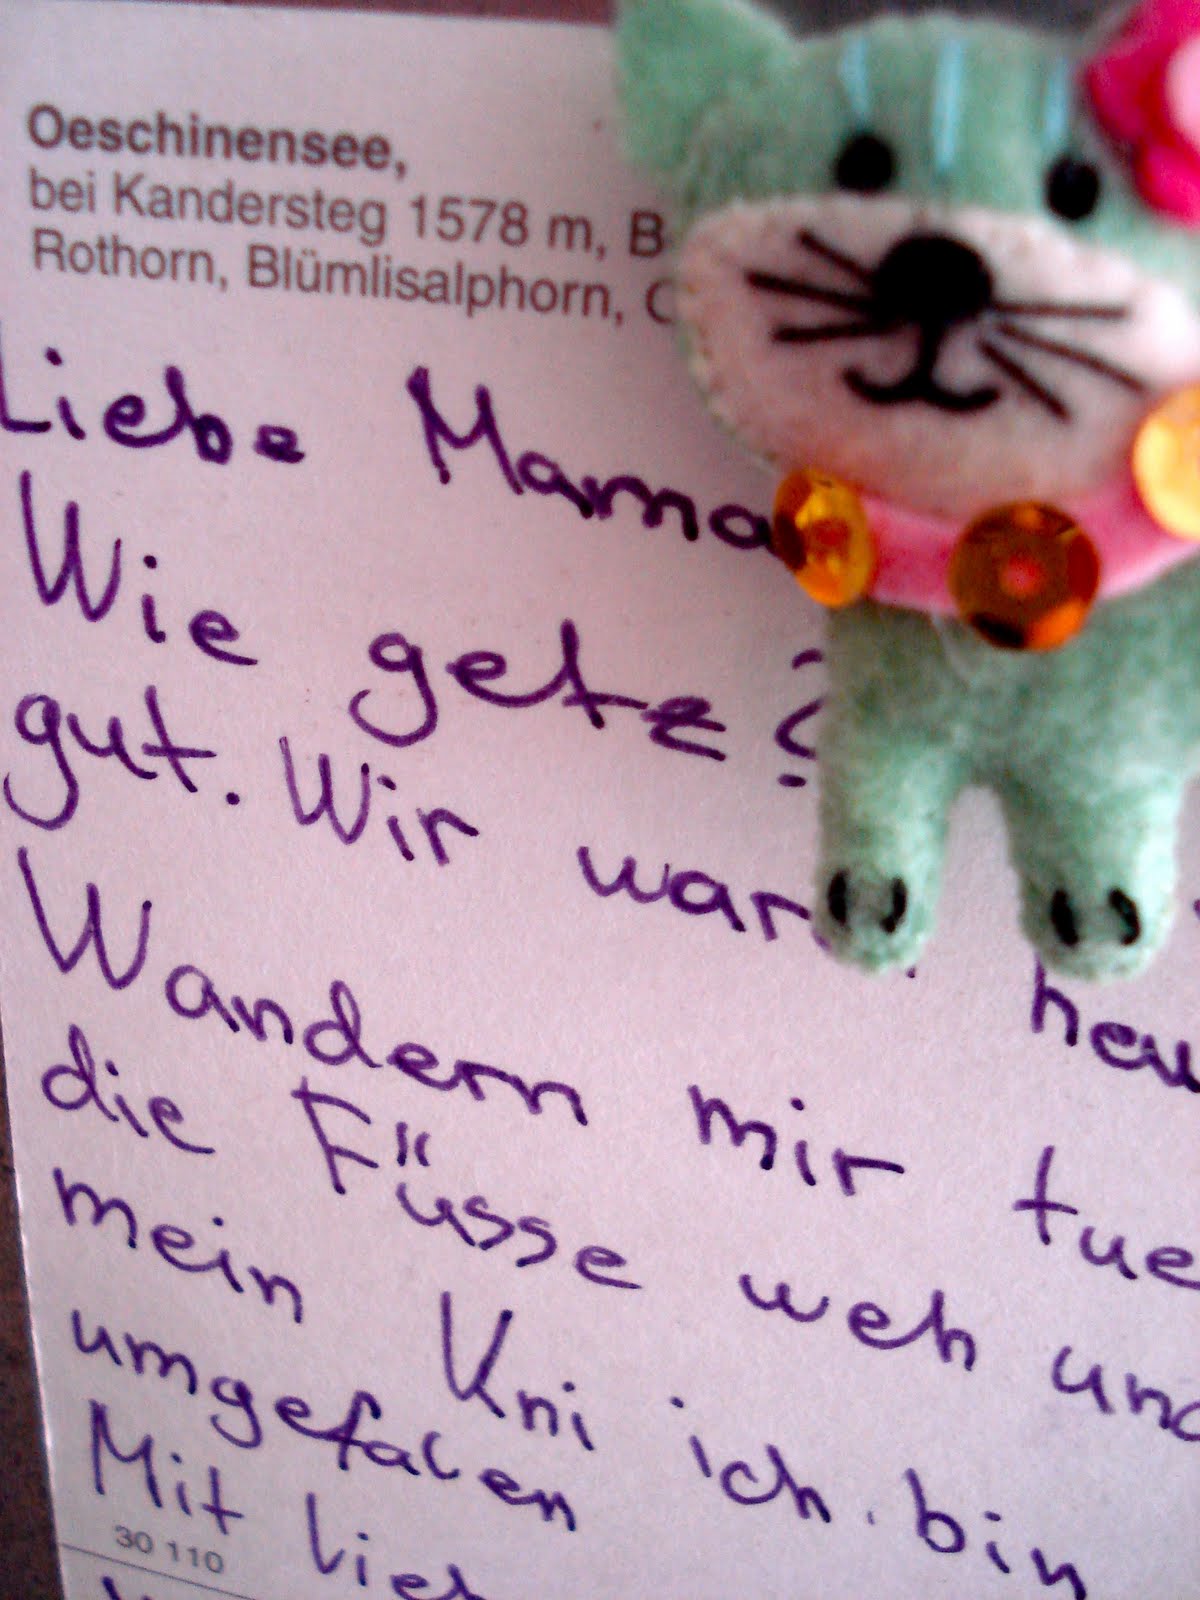 Oeschinensee,
bei Kandersteg 1578 m, B
Rothorn, Blümlisalphorn,
Liebe Mama
Wie getz?
gut. Wir war heu
Wandern mir tue
die Füsse weh und
mein Kni ich bin
umgefalen
Mit lieb
30 110